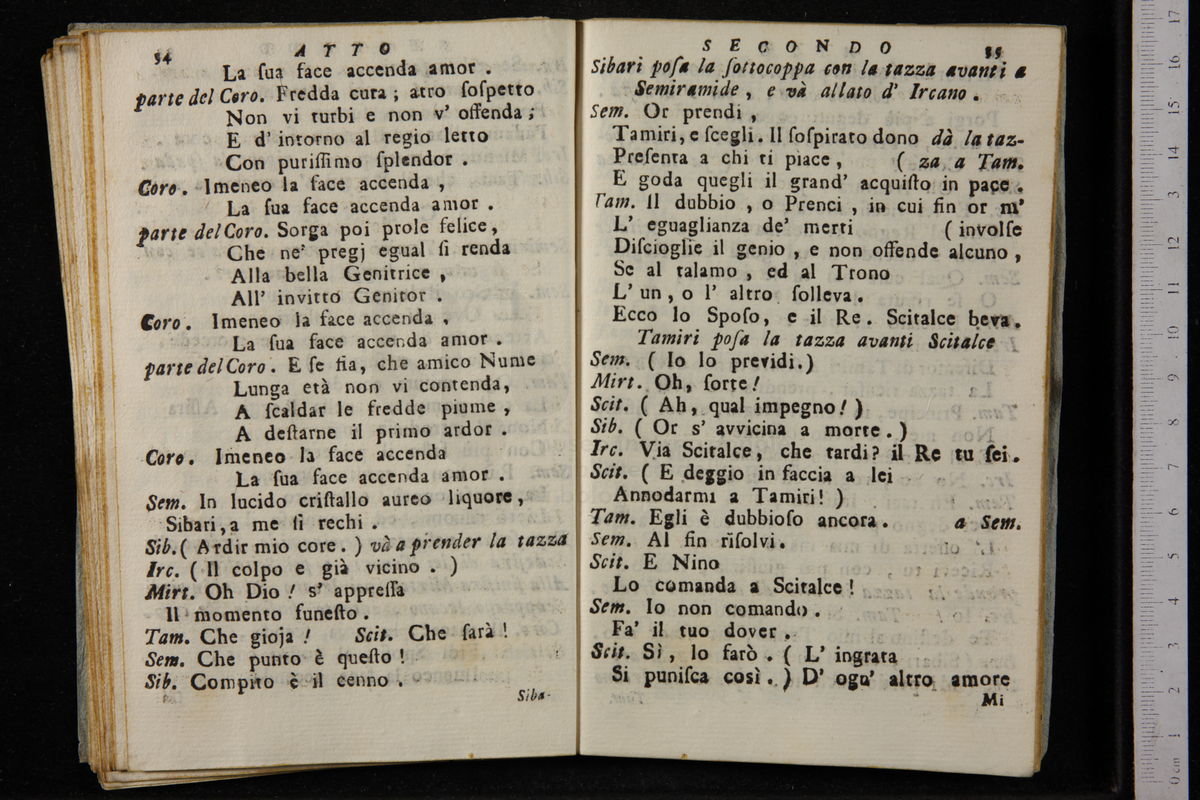 34
ATTO
La ſua face accenda amor .
parte del Coro. Fredda cura ; atro ſoſpetto
Non vi turbi e non v' offenda ;
E d' intorno al regio letto
Con puriſſimo ſplendor .
Coro . Imeneo la face accenda ,
La ſua face accenda amor .
parte del Coro. Sorga poi prole felice,
Che ne' pregj egual ſi renda
Alla bella Genitrice ,
All' invitto Genitor .
Coro . Imeneo la face accenda ,
La ſua face accenda amor .
parte del Coro . E ſe fia, che amico Nume
Lunga età non vi contenda,
A ſcaldar le fredde piume ,
A deſtarne il primo ardor .
Coro . Imeneo la face accenda
La ſua face accenda amor .
Sem. In lucido criſtallo aureo liquore,
Sibari, a me ſi rechi .
Sib. ( Ardir mio core . ) và a prender la tazza
Irc. ( Il colpo e già vicino . )
Mirt. Oh Dio ! s' appreſſa
Il momento funeſto .
Tam. Che gioja ! Scit. Che ſarà !
Sem. Che punto è queſto !
Sib. Compito è il cenno .
Siba-
SECONDO
35
Sibari poſa la ſottocoppa con la tazza avanti a
Semiramide , e và allato d' Ircano .
Sem. Or prendi ,
Tamiri, e ſcegli. Il ſoſpirato dono dà la taz-
Preſenta a chi ti piace , ( za a Tam.
E goda quegli il grand' acquiſto in pace .
Tam. Il dubbio , o Prenci , in cui fin or m'
L' eguaglianza de' merti ( involſe
Diſcioglie il genio , e non offende alcuno ,
Se al talamo , ed al Trono
L' un , o l' altro ſolleva .
Ecco lo Spoſo, e il Re . Scitalce beva .
Tamiri poſa la tazza avanti Scitalce
Sem. ( Io lo previdi. )
Mirt. Oh, ſorte !
Scit. ( Ah, qual impegno ! )
Sib. ( Or s' avvicina a morte . )
Irc. Via Scitalce, che tardi? il Re tu ſei .
Scit. ( E deggio in faccia a lei
Annodarmi a Tamiri! )
Tam. Egli è dubbioſo ancora . a Sem.
Sem. Al fin riſolvi .
Scit. E Nino
Lo comanda a Scitalce !
Sem. Io non comando .
Fa' il tuo dover .
Scit. Sì , lo farò . ( L' ingrata
Si puniſca così . ) D' ogn' altro amore
Mi
0 cm 1 2 3 4 5 6 7 8 9 10 11 12 13 14 15 16 17